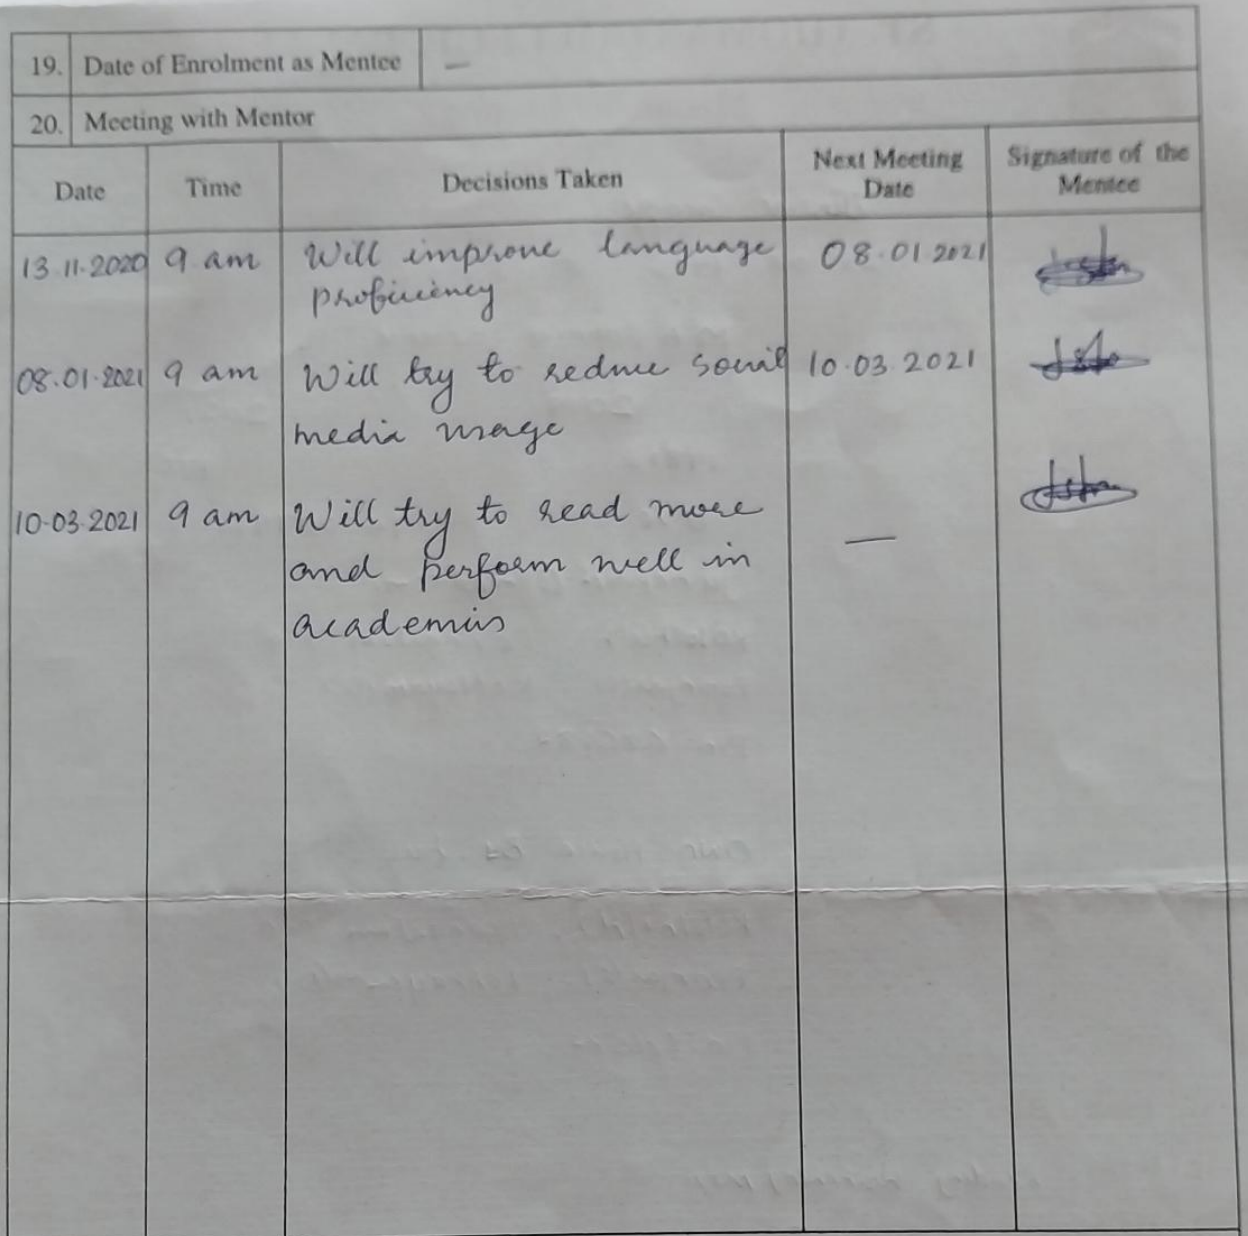 19. Date of Enrolment as Mentee —
20. Meeting with Mentor
Date Time Decisions Taken Next Meeting Date Signature of the Mentee
13.11.2020 9 am Will improve language 08.01.2021
proficiency
08.01.2021 9 am Will try to reduce social 10.03.2021
media usage
10.03.2021 9 am Will try to read more —
and perform well in
academics